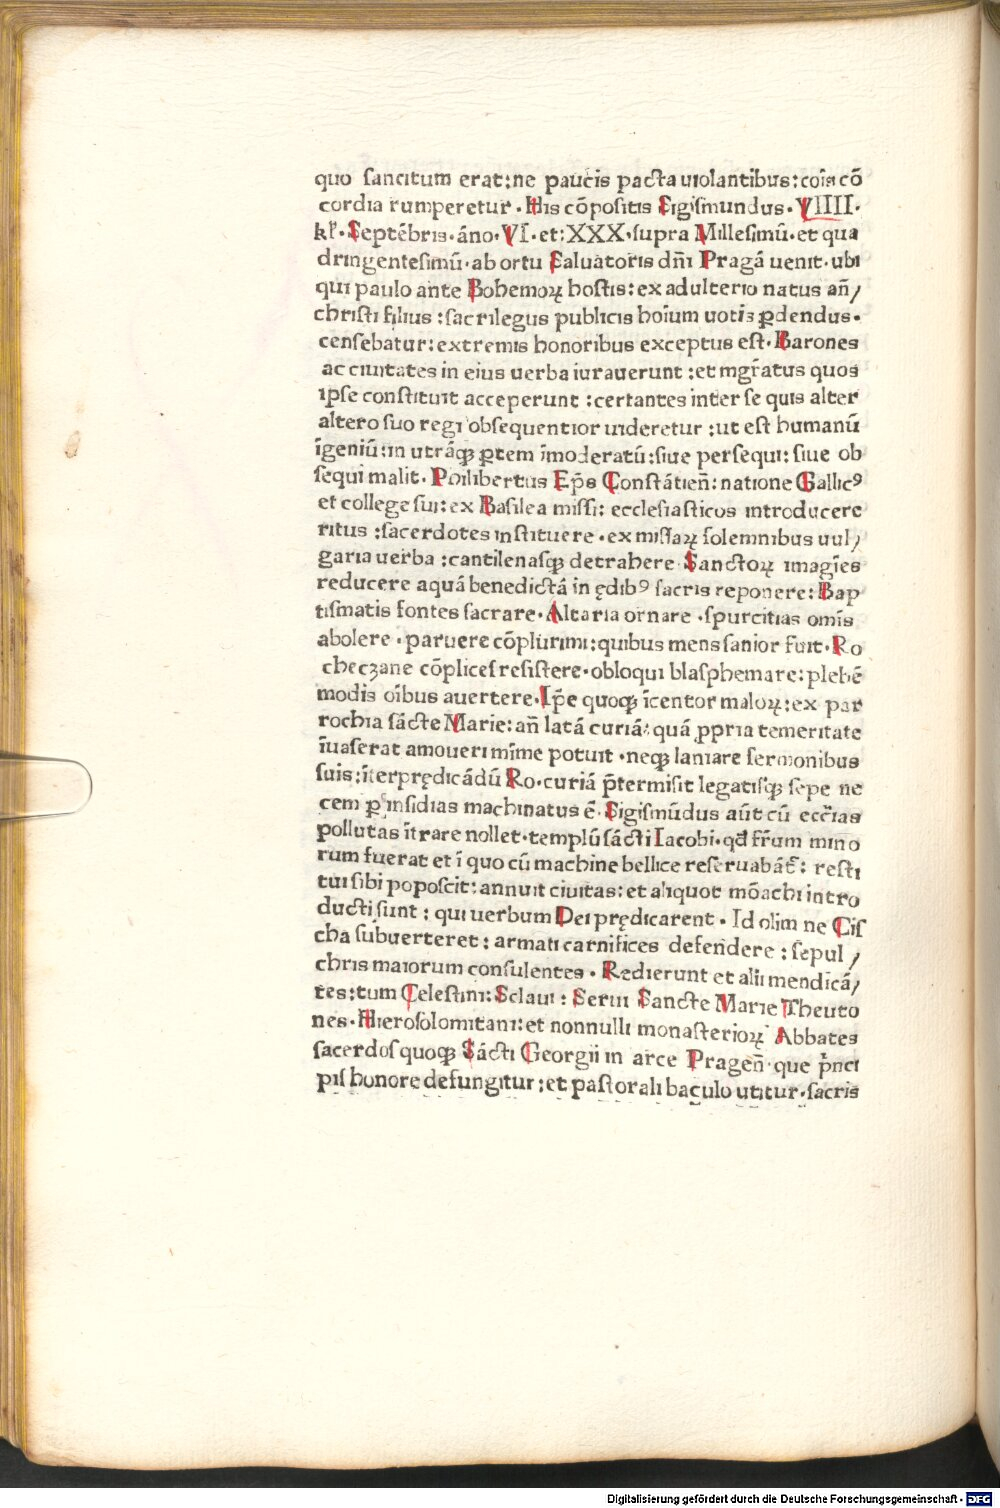 quo sancitum erat:ne paucis pacta uiolantibus:coīs cō
cordia rumperetur·His cōpositis Sigismundus·VIIII·
kl̄·Septēbris·āno·VI·et:XXX·supra Millesimū·et qua
dringentesimū·ab ortu Saluatoris dn̄i Pragā uenit·ubi
qui paulo ante Bohemoꝝ hostis:ex adulterio natus an̄/
christi filius:sacrilegus publicis hoīum uotis ꝑdendus·
censebatur:extremis honoribus exceptus est·Barones
ac ciuitates in eius uerba iurauerunt:et mgr̄atus quos
ipse constituit acceperunt:certantes inter se quis alter
altero suo regi obsequentior uideretur:ut est humanū
īgeniū:in utrāqꝫ ꝑtem īmoderatū:siue persequi:siue ob
sequi malit·Philibertus Ep̄s Constātien̄:natione Gallicꝰ
et college sui:ex Basilea missi:ecclesiasticos introducere
ritus:sacerdotes instituere·ex missaꝝ solemnibus uul/
garia uerba:cantilenasqꝫ detrahere Sanctoꝝ imagīes
reducere aquā benedictā in ędibꝰ sacris reponere:Bap
tismatis fontes sacrare·Altaria ornare·spurcitias omīs
abolere·paruere cōplurimi:quibus mens sanior fuit·Ro
checzane cōplices resistere·obloqui blasphemare:plebē
modis oībus auertere·Ip̄e quoqꝫ īcentor maloꝝ:ex par
rochia sācte Marie:an̄ latā curiā:quā ꝓpria temeritate
īuaserat amoueri mīme potuit·neqꝫ laniare sermonibus
suis:īterprędicādū Ro·curiā p̄termisit legatisqꝫ sepe ne
cem ꝑ insidias machinatus ē·Sigismūdus aūt cū eccl̄ias
pollutas ītrare nollet·templū sācti Iacobi·qd̄ fr̄um mino
rum fuerat et ī quo cū machine bellice reseruabāt̄:resti
tui sibi poposcit:annuit ciuitas:et aliquot mōachi intro
ducti sunt:qui uerbum Dei prędicarent·Id olim ne Cis
cha subuerteret:armati carnifices defendere:sepul/
chris maiorum consulentes·Redierunt et alii mendicā/
tes:tum Celestini:Sclaui:Serui Sancte Marie Theuto
nes·Hierosolomitani:et nonnulli monasterioꝝ Abbates
sacerdos quoqꝫ Sācti Georgii in arce Pragen̄·que p̄nci
pis honore defungitur:et pastorali baculo utitur·sacris
Digitalisierung gefördert durch die Deutsche Forschungsgemeinschaft - DFG